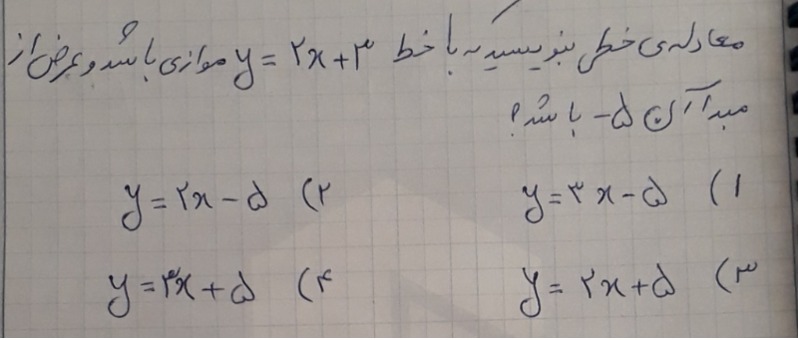 معادله‌ی خطی بنویسید که با خط y = ۲x + ۳ موازی باشد و عرض از
مبدأ آن ۵- باشد؟
۱) y = ۳x - ۵ ۲) y = ۲x - ۵
۳) y = ۲x + ۵ ۴) y = ۳x + ۵